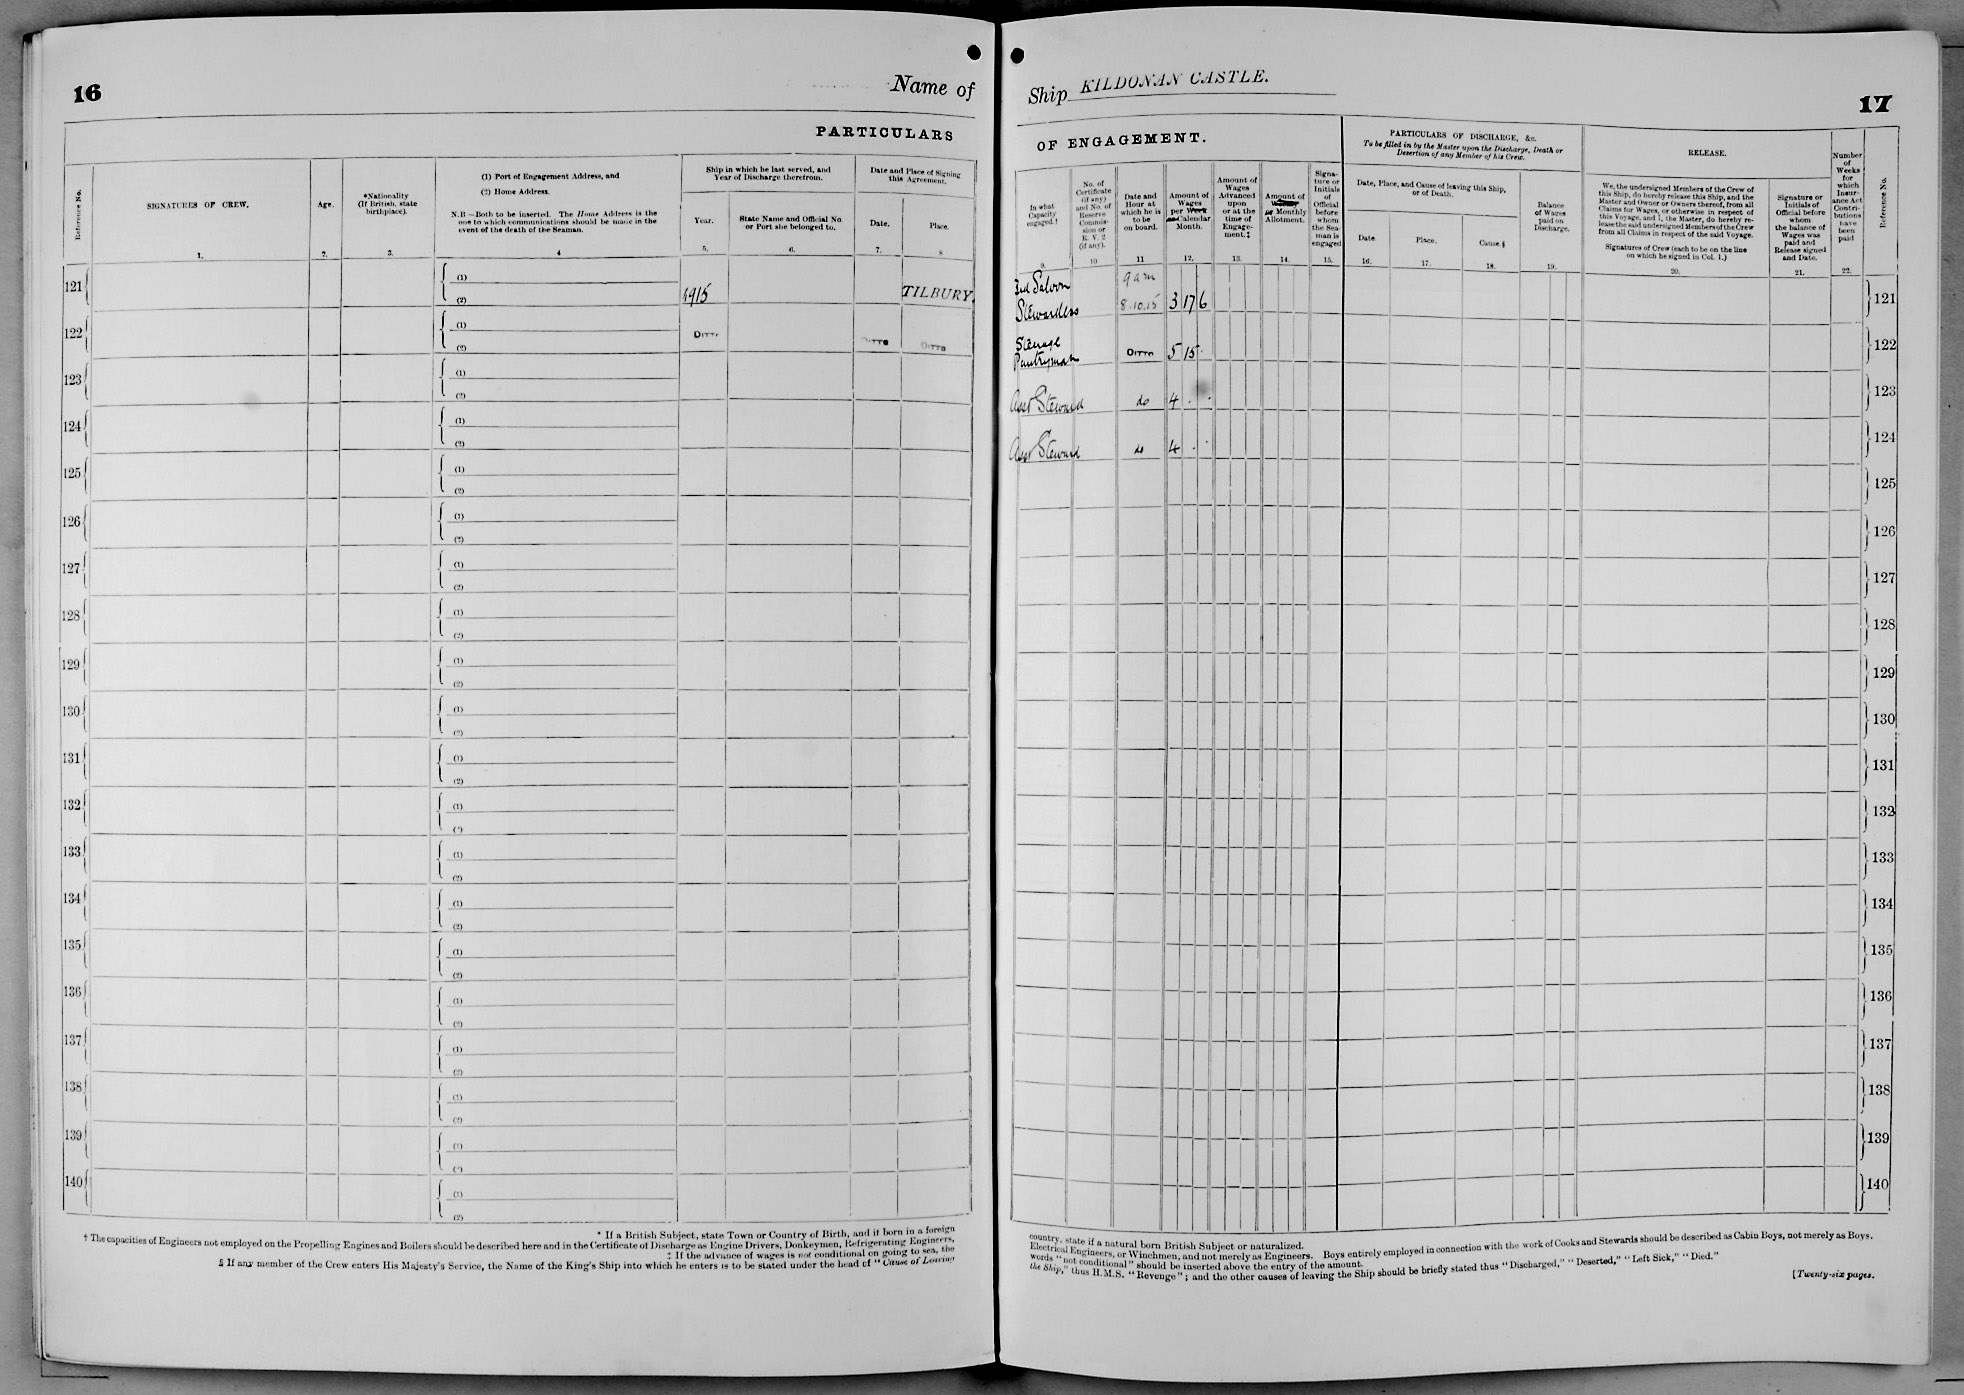 16
Name of
PARTICULARS
Reference No.
SIGNATURES OF CREW.
1.
Age.
2.
*Nationality
(If British, state
birthplace).
3.
(1) Port of Engagement Address, and
(2) Home Address.
N.B —Both to be inserted. The Home Address is the
one to which communications should be made in the
event of the death of the Seaman.
4
Ship in which he last served, and
Year of Discharge therefrom.
Year.
5.
State Name and Official No
or Port she belonged to.
6.
Date and Place of Signing
this Agreement.
Date.
7.
Place.
8
121
(1)
(2)
1915
TILBURY.
122
(1)
(2)
DITTO
DITTO
DITTO
123
(1)
(2)
124
(1)
(2)
125
(1)
(2)
126
(1)
(2)
127
(1)
(2)
128
(1)
(2)
129
(1)
(2)
130
(1)
(2)
131
(1)
(2)
132
(1)
(2)
133
(1)
(2)
134
(1)
(2)
135
(1)
(2)
136
(1)
(2)
137
(1)
(2)
138
(1)
(2)
139
(1)
(2)
140
(1)
(2)
* If a British Subject, state Town or Country of Birth, and if born in a foreign
† The capacities of Engineers not employed on the Propelling Engines and Boilers should be described here and in the Certificate of Discharge as Engine Drivers, Donkeymen, Refrigerating Engineers,
‡ If the advance of wages is not conditional on going to sea, the
§ If any member of the Crew enters His Majesty's Service, the Name of the King's Ship into which he enters is to be stated under the head of "Cause of Leaving
Ship KILDONAN CASTLE.
17
OF ENGAGEMENT.
In what
Capacity
engaged.†
9.
No. of
Certificate
(if any)
and No. of
Reserve
Commis-
sion or
R. V. 2
(if any).
10
Date and
Hour at
which he is
to be
on board.
11
Amount of
Wages
per Week
or Calendar
Month.
12.
Amount of
Wages
Advanced
upon
or at the
time of
Engage-
ment.‡
13.
Amount of
Monthly
Allotment.
14.
Signa-
ture or
Initials
of
Official
before
whom
the Sea-
man is
engaged
15.
PARTICULARS OF DISCHARGE, &c.
To be filled in by the Master upon the Discharge, Death or
Desertion of any Member of his Crew.
Date, Place, and Cause of leaving this Ship,
or of Death.
Date
16.
Place.
17.
Cause.§
18.
Balance
of Wages
paid on
Discharge.
19.
RELEASE.
We, the undersigned Members of the Crew of
this Ship, do hereby release this Ship, and the
Master and Owner or Owners thereof, from all
Claims for Wages, or otherwise in respect of
this Voyage, and I, the Master, do hereby re-
lease the said undersigned Members of the Crew
from all Claims in respect of the said Voyage.
Signatures of Crew (each to be on the line
on which he signed in Col. 1.)
20.
Signature or
Initials of
Official before
whom
the balance of
Wages was
paid and
Release signed
and Date.
21.
Number
of
Weeks
for
which
Insur-
ance Act
Contri-
butions
have
been
paid
22.
Reference No.
3rd Saloon
Stewardess
9 am
8.10.15
3 17 6
121
Steerage
Pantryman
DITTO
5 15 -
122
Asst Steward
do
4 - -
123
Asst Steward
do
4 - -
124
125
126
127
128
129
130
131
132
133
134
135
136
137
138
139
140
country, state if a natural born British Subject or naturalized.
Electrical Engineers, or Winchmen, and not merely as Engineers. Boys entirely employed in connection with the work of Cooks and Stewards should be described as Cabin Boys, not merely as Boys.
words "not conditional" should be inserted above the entry of the amount.
the Ship," thus H.M.S. "Revenge"; and the other causes of leaving the Ship should be briefly stated thus "Discharged," "Deserted," "Left Sick," "Died."
[Twenty-six pages.